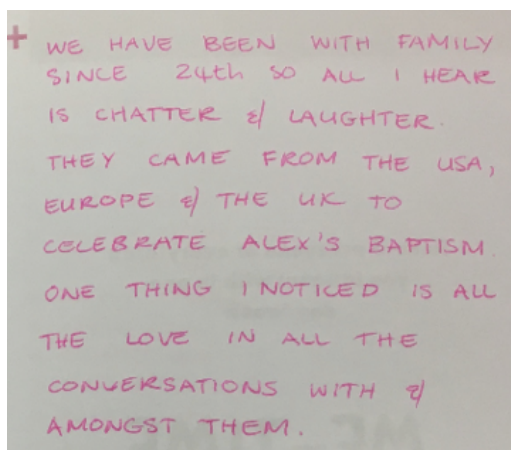 + WE HAVE BEEN WITH FAMILY
SINCE 24th SO ALL I HEAR
IS CHATTER & LAUGHTER.
THEY CAME FROM THE USA,
EUROPE & THE UK TO
CELEBRATE ALEX'S BAPTISM.
ONE THING I NOTICED IS ALL
THE LOVE IN ALL THE
CONVERSATIONS WITH &
AMONGST THEM.